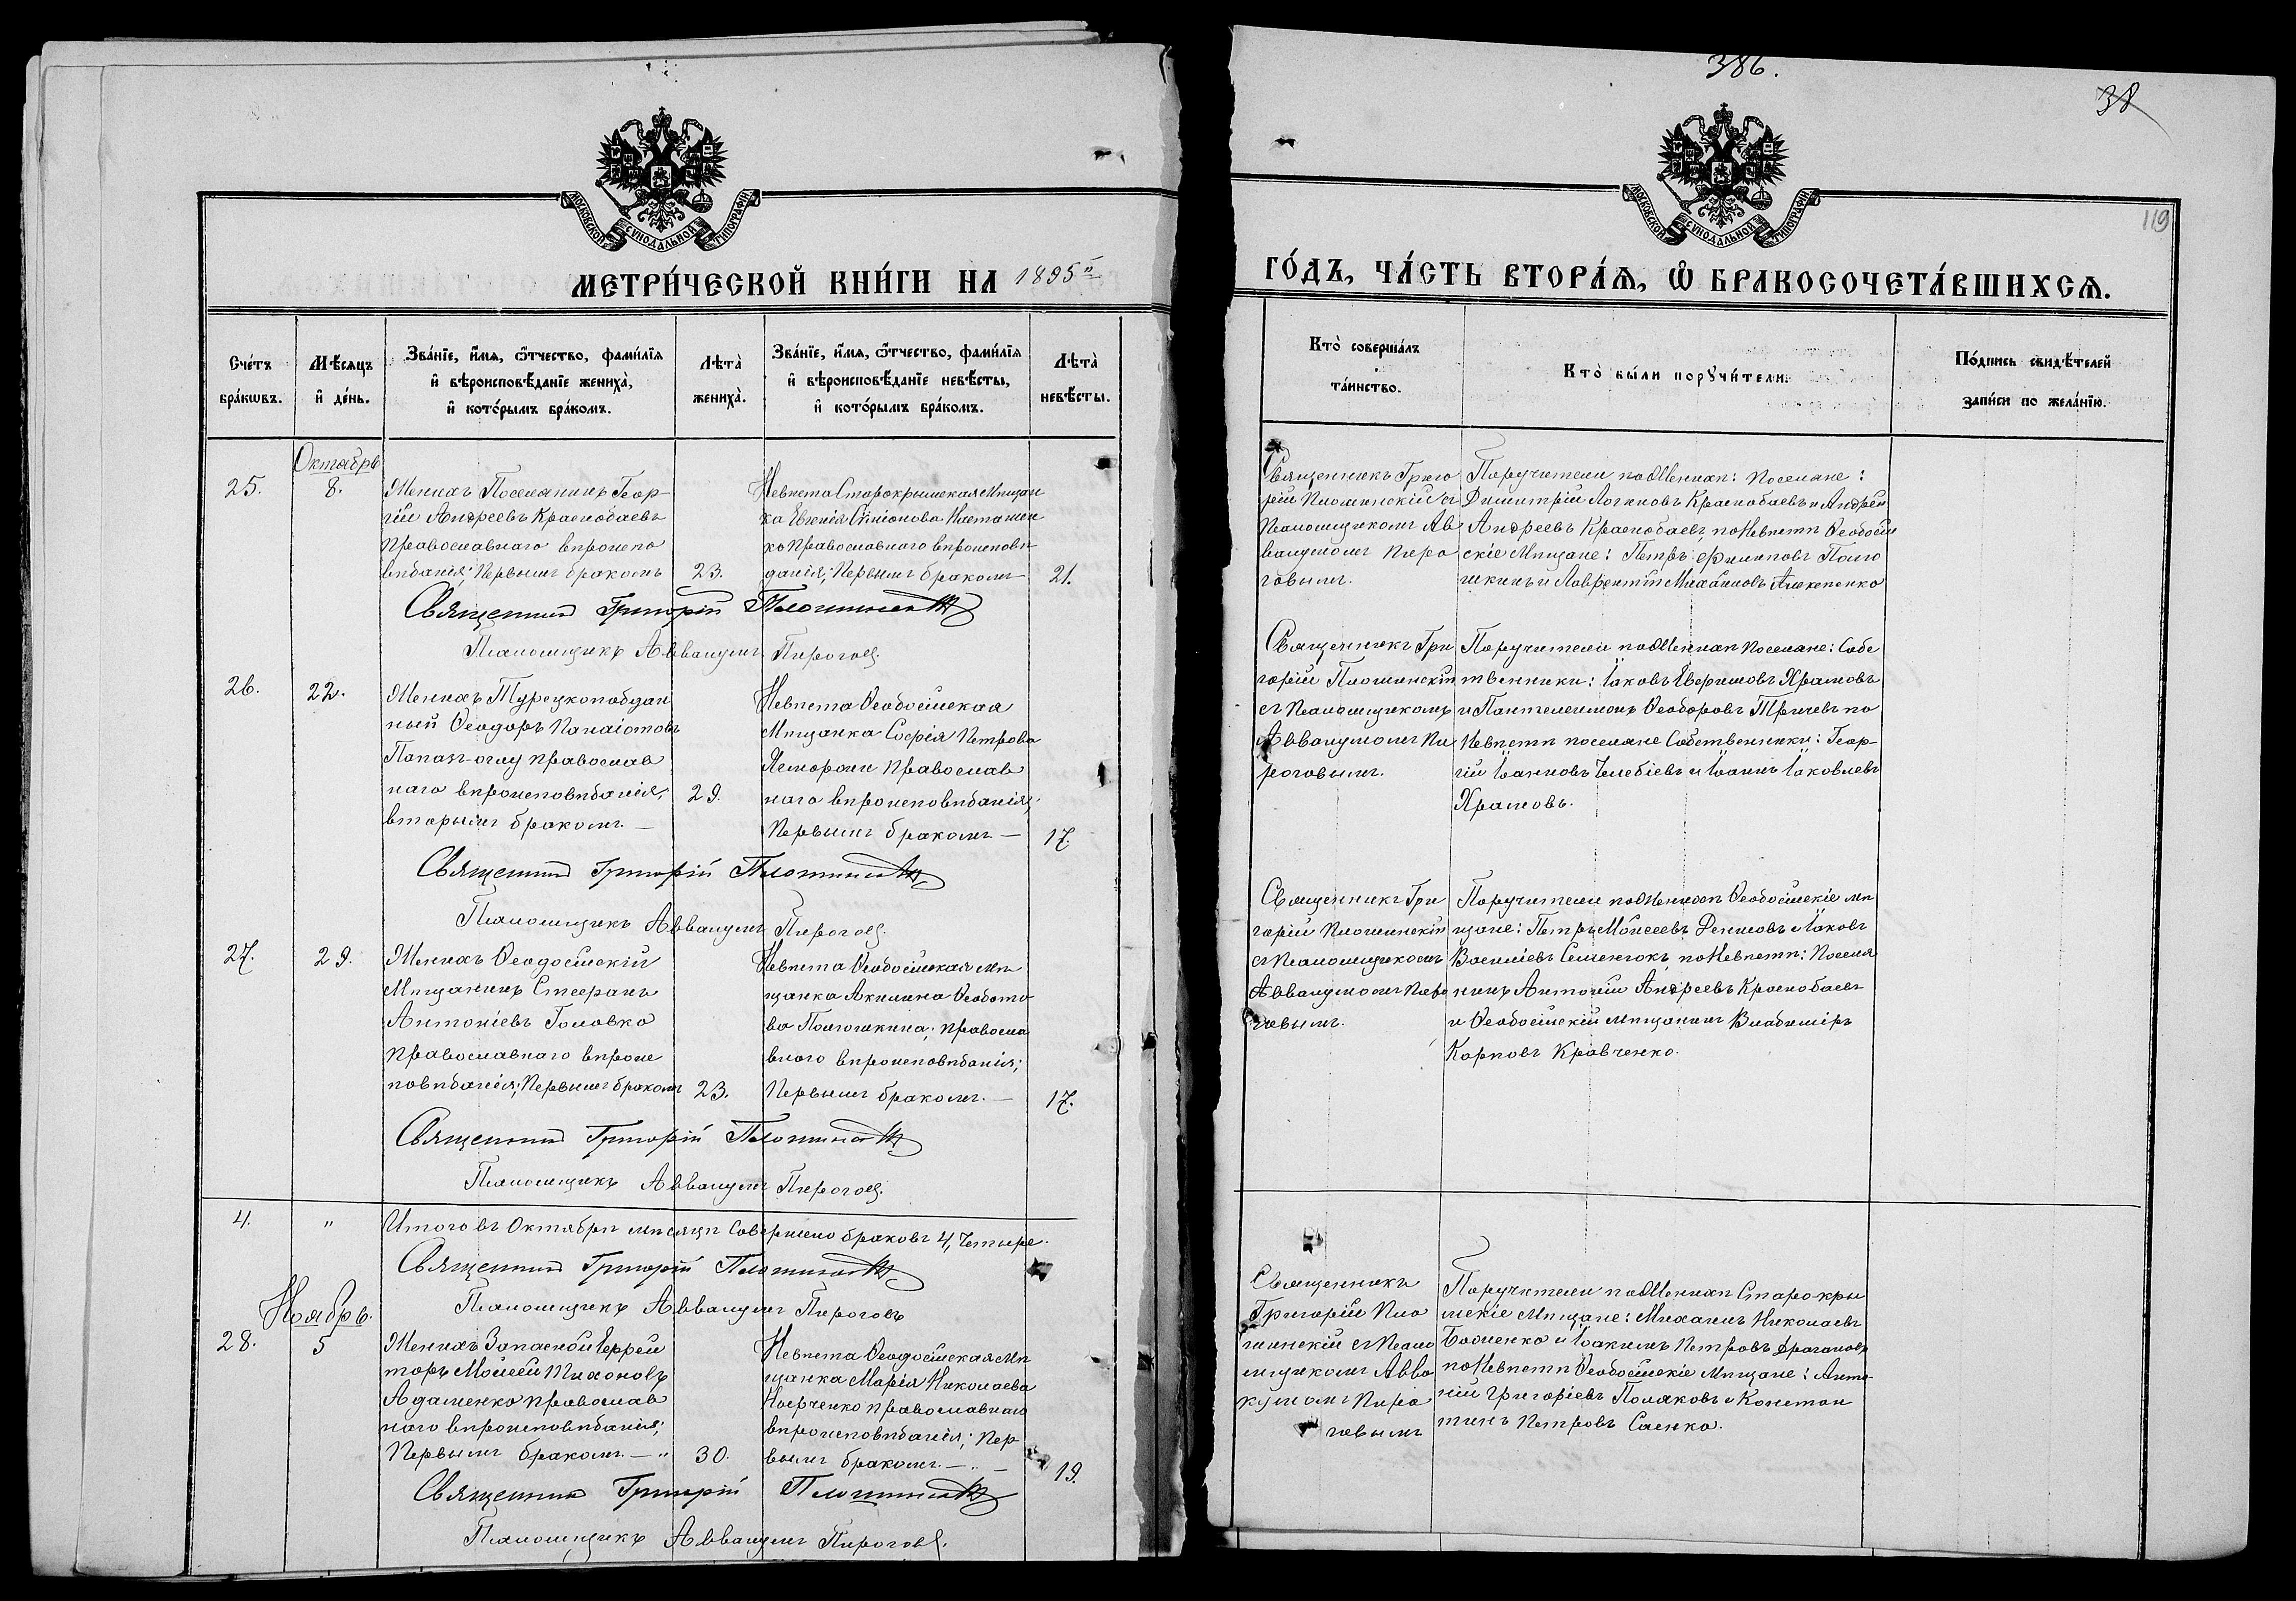 386.
38
119
МОСКОВСКОЙ СѴНОДАЛЬНОЙ ТИПОГРАФІИ
МОСКОВСКОЙ СѴНОДАЛЬНОЙ ТИПОГРАФІИ
МЕТРИ́ЧЕСКОЙ КНИ́ГИ НА 1895 й
ГО́ДЪ, ЧА́СТЬ ВТОРА́Ѧ, Ѡ҆ БРАКОСОЧЕТА́ВШИХСѦ.
Сче́тъ
бра́кωвъ.
Мѣ́сѧцъ
и҆ де́нь.
Зва́нїе, и҆́мѧ, ѻ҆́тчество, фами́лїѧ
и҆ вѣроисповѣ́данїе жениха̀,
и҆ кото́рымъ бра́комъ.
Лѣта̀
жениха̀.
Зва́нїе, и҆́мѧ, ѻ҆́тчество, фами́лїѧ
и҆ вѣроисповѣ́данїе невѣ́сты,
и҆ кото́рымъ бра́комъ.
Лѣта̀
невѣ́сты.
Кто̀ соверша́лъ
та́инство.
Кто̀ бы́ли порꙋчи́тели.
По́дпись свидѣ́телей
за́писи по жела́нїю.
Октябрь
25.
8.
Женихъ Поселянинъ Геор-
гій Андреевъ Краснобаевъ
православнаго вѣроиспо
вѣданія; Первымъ бракомъ
23.
Невѣста Старокрымская Мѣщан
ка Евгенія Сѵміонова
ко Православнаго вѣроисповѣ-
данія; Первымъ бракомъ
21.
Священникъ Григо
рій Плошинскій съ
Псаломщикомъ Ав
вакумомъ Пиро
говымъ.
Поручители по Женихѣ: поселяне:
Димитрій Логиновъ Краснобаевъ и Андрей
Андреевъ Краснобаевъ, по Невѣстѣ Ѳеодосій
скіе Мѣщане: Петръ Филиповъ Полто
шкинъ и Лаврентій Михайловъ
Священникъ Григорій Плошинскій
Псаломщикъ Аввакумъ Пироговъ.
26.
22.
Женихъ Турецкоподдан
ный Ѳеодоръ Панаіотовъ
Папаз-оглу православ
наго вѣроисповѣданія,
вторымъ бракомъ. —
29.
Невѣста Ѳеодосійская
Мѣщанка Софія Петрова
православ
наго вѣроисповѣданія;
Первымъ бракомъ —
17.
Священникъ Гри
горій Плошинскій
съ Псаломщикомъ
Аввакумомъ Пи
роговымъ.
Поручители по Женихѣ Поселяне: Собс
твенники: Іаковъ Храмовъ
и Пантелеимонъ Ѳеодоровъ по
Невѣстѣ поселяне Собственники: Геор-
гій Іоанновъ Челебіевъ и Іоаннъ Іаковлевъ
Храмовъ.
Священникъ Григорій Плошинскій
Псаломщикъ Аввакумъ Пироговъ.
27.
29.
Женихъ Ѳеодосійскій
Мѣщанинъ Стефанъ
Антоніевъ Головко
православнаго вѣроис
повѣданія; Первымъ бракомъ
23.
Невѣста Ѳеодосійская Мѣ
щанка Акилина Ѳеодото
ва Полтошкина; православ
внаго вѣроисповѣданія;
Первымъ бракомъ. —
17.
Священникъ Гри
горій Плошинскій
съ Псаломщикомъ
Аввакумомъ Пиро
говымъ.
Поручители по Женихѣ Ѳеодосійскіе мѣ
щане: Петръ Моисеевъ Денисовъ и Іаковъ
Василіевъ Семенюкъ, по Невѣстѣ: Поселя
нинъ Антоній Андреевъ Краснобаевъ
и Ѳеодосійскій мѣщанинъ Владиміръ
Карповъ Кравченко.
Священникъ Григорій Плошинскій
Псаломщикъ Аввакумъ Пироговъ.
4.
"
Итого въ Октябрѣ мѣсяцѣ Совершено браковъ 4, Четыре.
Священникъ Григорій Плошинскій
Псаломщикъ Аввакумъ Пироговъ
Ноябрь.
28.
5
Женихъ Запасной Ефрей
торъ Моисей Тихоновъ
Адаменко православ
наго вѣроисповѣданія;
Первымъ бракомъ. — "
30.
Невѣста Ѳеодосійская Мѣ
щанка Марія Николаева
православнаго
вѣроисповѣданія; Пер
вымъ бракомъ. —
19.
Священникъ
Григорій Пло
шинскій съ Псало
мщикомъ Авва
кумомъ Пиро
говымъ
Поручители по Женихѣ Старо-кры
мскіе Мѣщане: Михаилъ Николаевъ
Боженко и Іоакимъ Петровъ Драгановъ
по Невѣстѣ Ѳеодосійскіе Мѣщане: Анто-
ній Григоріевъ Поляковъ и Констан
тинъ Петровъ Саенко.
Священникъ Григорій Плошинскій
Псаломщикъ Аввакумъ Пироговъ.